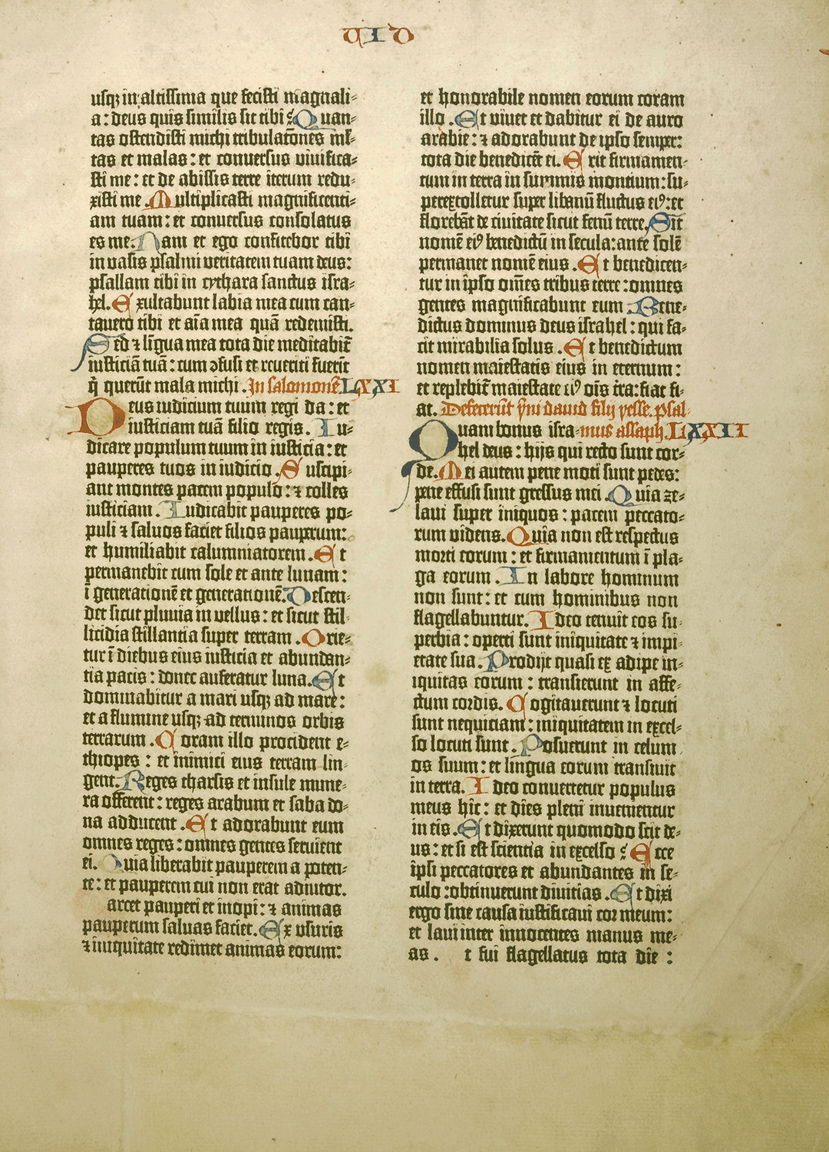 DID
usq̃ in altissima que fecisti magnali-
a: deus quis similis sit tibi? Quan-
tas ostendisti michi tribulatōnes ml̃-
tas et malas: et conuersus viuifica-
sti me: et de abissis terre iterum redu-
xisti me. Multiplicasti magnificenti-
am tuam: et conuersus consolatus
es me. Nam et ego confitebor tibi
in vasis psalmi veritatem tuam deus:
psallam tibi in cythara sanctus isra-
hel. Exultabunt labia mea cum can-
tauero tibi et aīa mea quā redemisti.
Sed ⁊ līgua mea tota die meditabit̄
iusticiā tuā: cum ꝯfusi et reueriti fuerīt
q̄ querūt mala michi. In salomonē. LXXI
Deus iudicium tuum regi da: et
iusticiam tuā filio regis. Iu-
dicare populum tuum in iusticia: et
pauperes tuos in iudicio. Suscipi-
ant montes pacem populo: ⁊ colles
iusticiam. Iudicabit pauperes po-
puli ⁊ saluos faciet filios pauperum:
et humiliabit calumniatorem. Et
permanebit cum sole et ante lunam:
ī generatione et generationē. Descen-
det sicut pluuia in vellus: et sicut stil-
licidia stillantia super terram. Orie-
tur ī diebus eius iusticia et abundan-
tia pacis: donec auferatur luna. Et
dominabitur a mari usq̃ ad mare:
et a flumine usq̃ ad terminos orbis
terrarum. Coram illo procident e-
thiopes: et inimici eius terram lin-
gent. Reges tharsis et insule mune-
ra offerent: reges arabum et saba do-
na adducent. Et adorabunt eum
omnes reges: omnes gentes seruient
ei. Quia liberabit pauperem a poten-
te: et pauperem cui non erat adiutor.
arcet pauperi et inopi: ⁊ animas
pauperum saluas faciet. Ex vsuris
⁊ iniquitate redimet animas eorum:
et honorabile nomen eorum coram
illo. Et viuet et dabitur ei de auro
arabie: ⁊ adorabunt de ipso semper:
tota die benedicēt ei. Erit firmamen-
tum in terra in summis montium: su-
perextolletur super libanū fructus eiꝰ: et
florebūt de ciuitate sicut fenū terre. Sit
nomē eiꝰ benedictū in secula: ante solē
permanet nomē eius. Et benedicen-
tur in ipso om̄es tribus terre: omnes
gentes magnificabunt eum. Bene-
dictus dominus deus israhel: qui fa-
cit mirabilia solus. Et benedictum
nomen maiestatis eius in eternum:
et replebit̄ maiestate eiꝰ oīs terra: fiat fi-
at. Defecerūt ymni dauid filij yesse. psal-
Quam bonus isra- mus assaph. LXXII
hel deus: hijs qui recto sunt cor-
de. Mei autem pene moti sunt pedes:
pene effusi sunt gressus mei. Quia ze-
laui super iniquos: pacem peccato-
rum videns. Quia non est respectus
morti eorum: et firmamentum ī pla-
ga eorum. In labore hominum
non sunt: et cum hominibus non
flagellabuntur. Ideo tenuit eos su-
perbia: operti sunt iniquitate ⁊ impi-
etate sua. Prodijt quasi ex adipe in-
iquitas eorum: transierunt in affe-
ctum cordis. Cogitauerunt ⁊ locuti
sunt nequiciam: iniquitatem in excel-
so locuti sunt. Posuerunt in celum
os suum: et lingua eorum transiuit
in terra. Ideo conuertetur populus
meus hic: et dies pleni inuenientur
in eis. Et dixerunt quomodo scit de-
us: et si est scientia in excelso? Ecce
ipsi peccatores et abundantes in se-
culo: obtinuerunt diuitias. Et dixi
ergo sine causa iustificaui cor meum:
et laui inter innocentes manus me-
as. t fui flagellatus tota die: